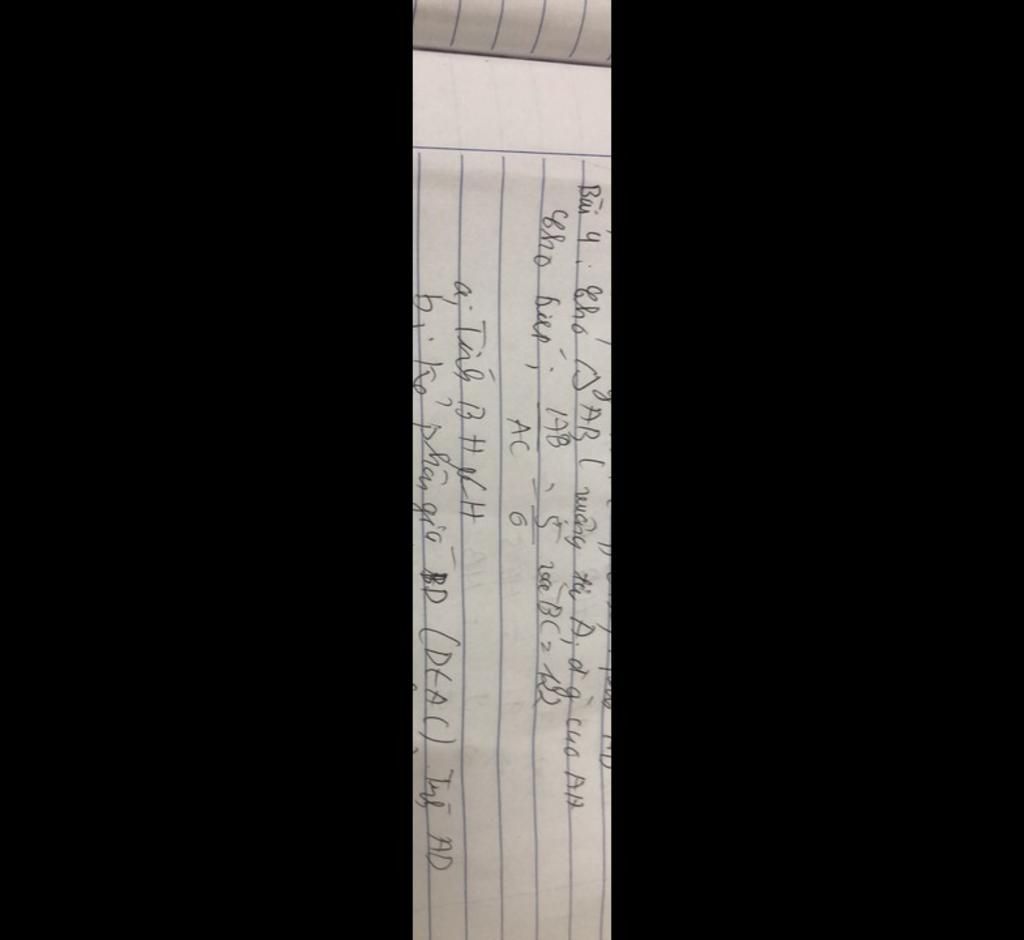 Bài 4: Cho Δg ABC vuông tại A, đg cao AH
Cho biết: AB/AC = 5/6 và BC = 122
a, Tính BH, CH
b, Kẻ phân giác BD (D∈AC) Tính AD